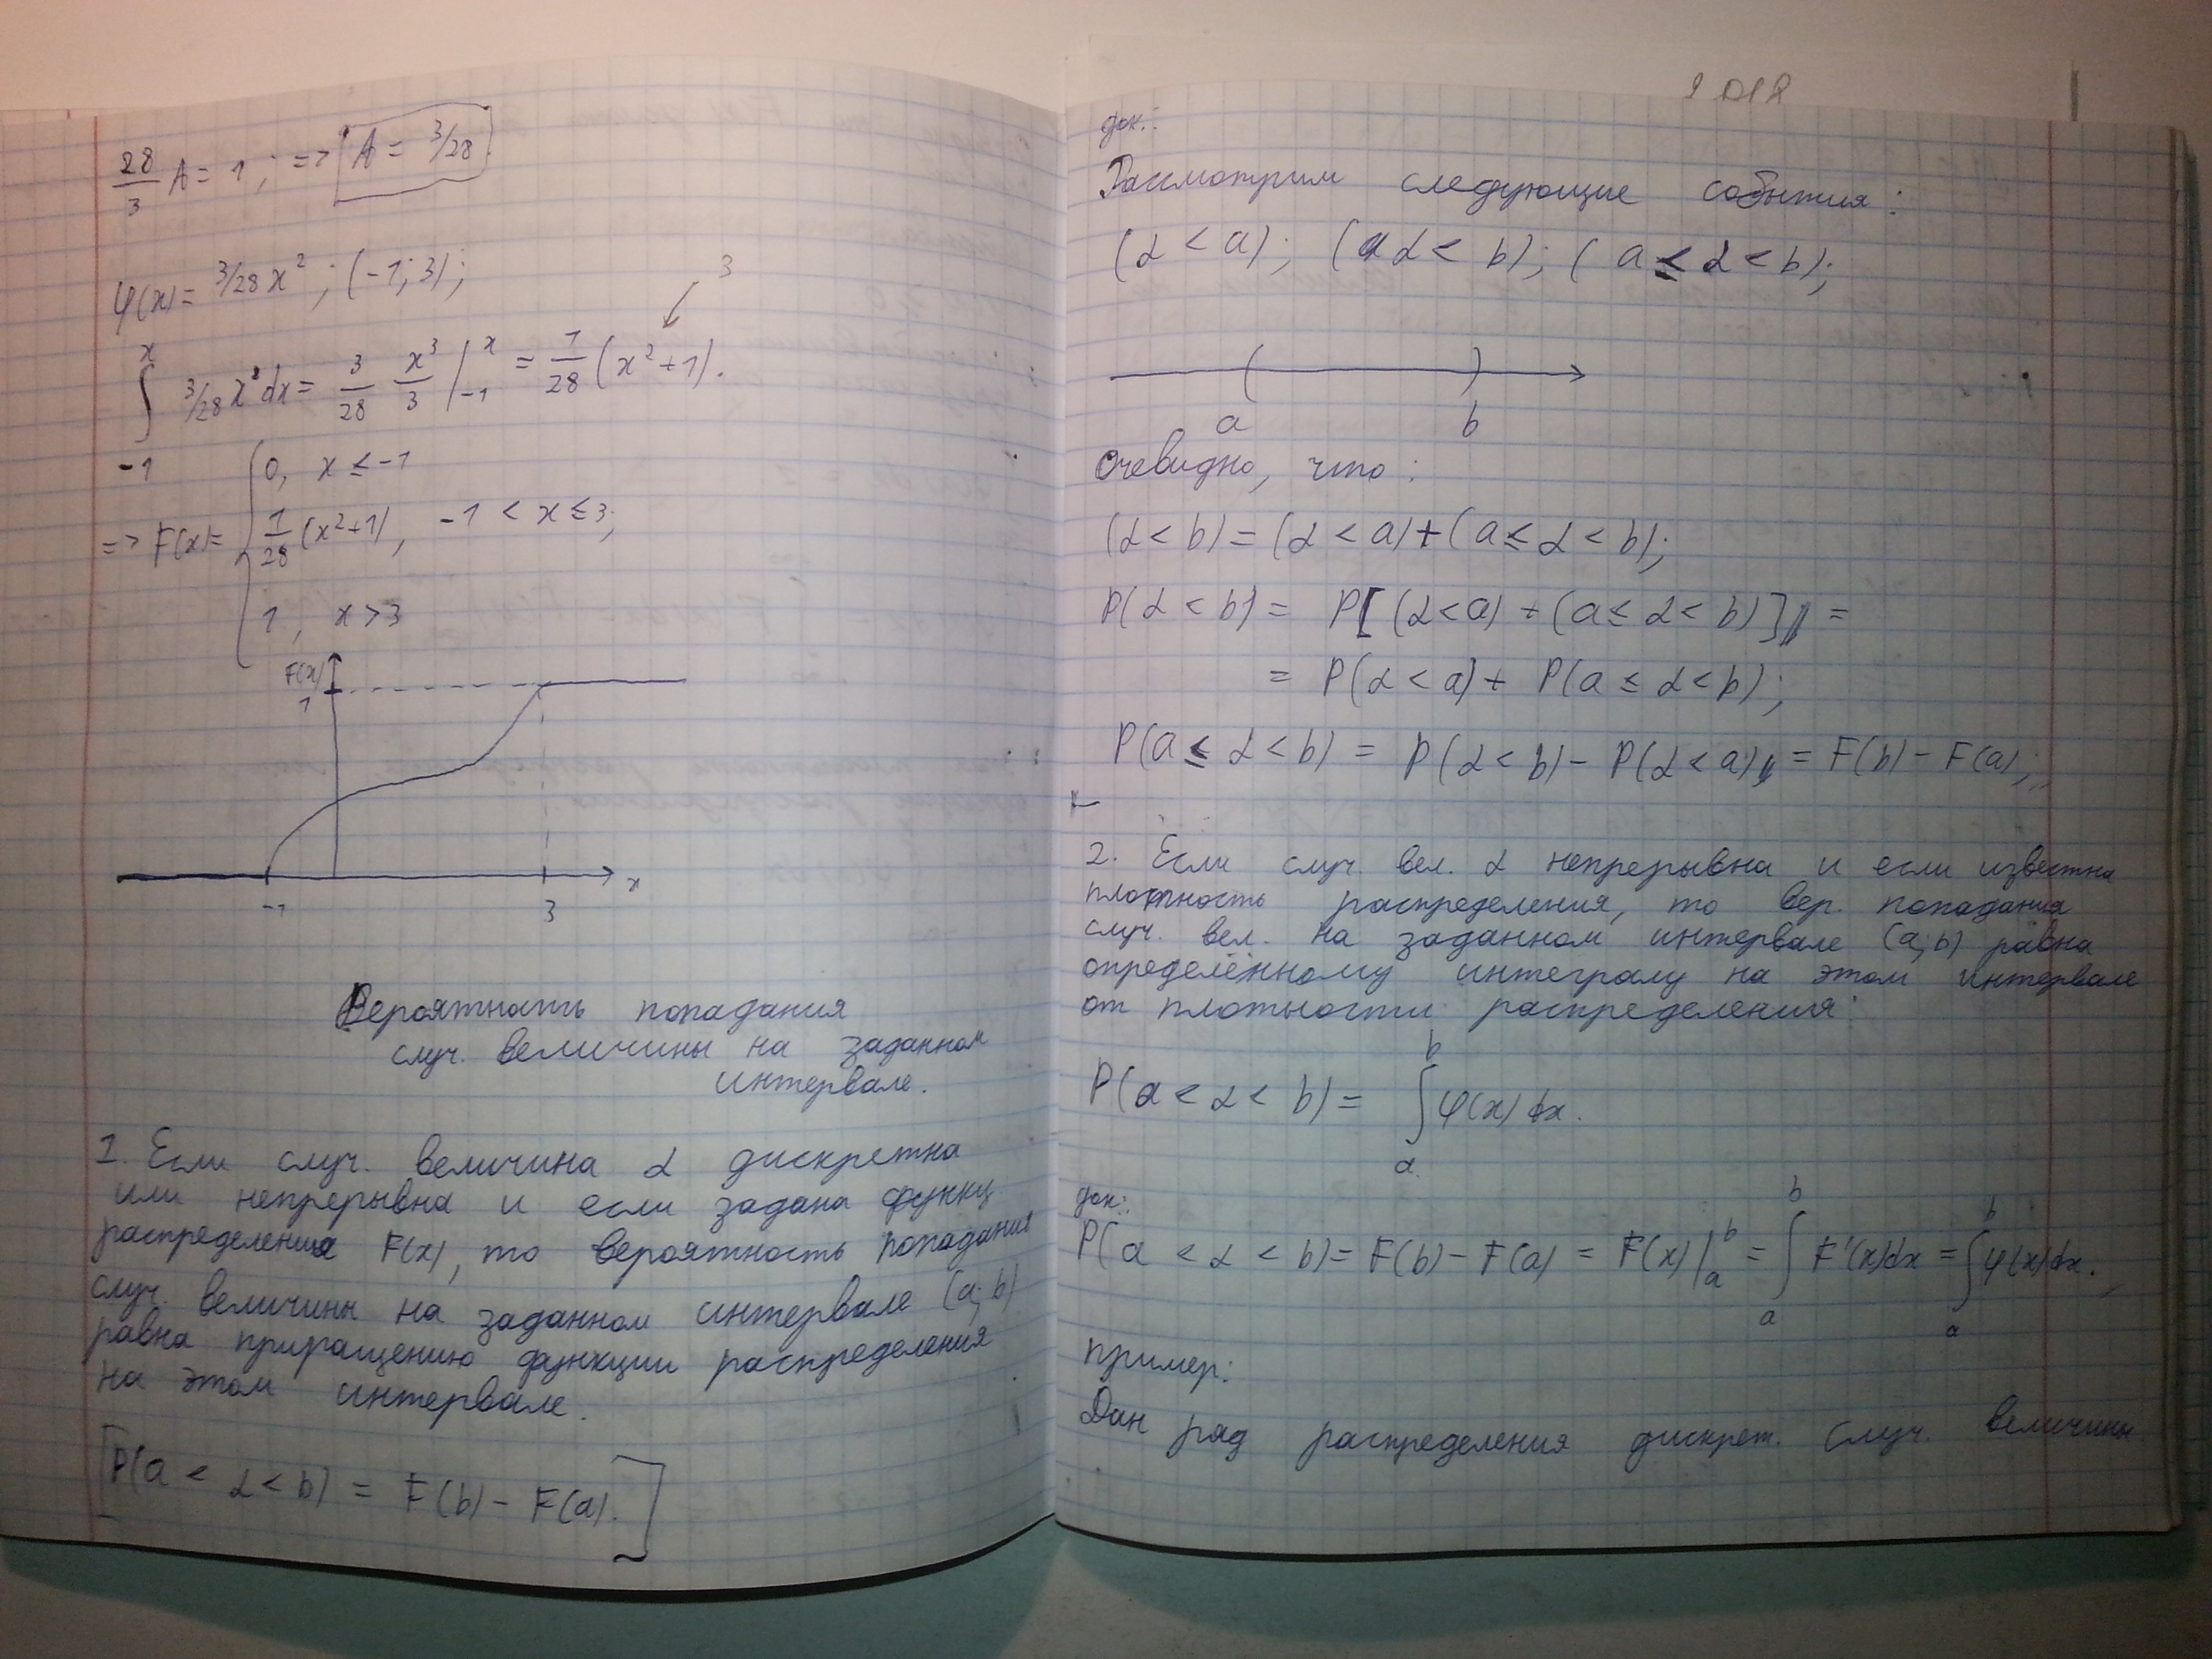 28/3 A = 1; => A = 3/28.
φ(x) = 3/28 x²; (-1; 3);
3
∫_{-1}^{x} 3/28 x² dx = 3/28 x³/3 |_{-1}^{x} = 1/28 (x² + 1).
=> F(x) = { 0, x ≤ -1
1/28 (x² + 1), -1 < x ≤ 3;
1, x > 3
F(x)
1
-1 3 x
Вероятность попадания
случ. величины на заданном
интервале.
1. Если случ. величина α дискретна
или непрерывна и если задана функц
распределения F(x), то вероятность попадания
случ. величины на заданном интервале (a; b)
равна приращению функции распределения
на этом интервале.
[P(a < α < b) = F(b) - F(a).]
док.:
Рассмотрим следующие события:
(α < a); (α < b); (a ≤ α < b);
a b
Очевидно, что:
(α < b) = (α < a) + (a ≤ α < b);
P(α < b) = P[(α < a) + (a ≤ α < b)] =
= P(α < a) + P(a ≤ α < b);
P(a ≤ α < b) = P(α < b) - P(α < a) = F(b) - F(a);
2. Если случ. вел. α непрерывна и если известна
плотность распределения, то вер. попадания
случ. вел. на заданном интервале (a; b) равна
определённому интегралу на этом интервале
от плотности распределения:
P(a < α < b) = ∫_{a}^{b} φ(x) dx.
док.:
P(a < α < b) = F(b) - F(a) = F(x) |_{a}^{b} = ∫_{a}^{b} F'(x) dx = ∫_{a}^{b} φ(x) dx.
пример:
Дан ряд распределения дискрет. случ. величины